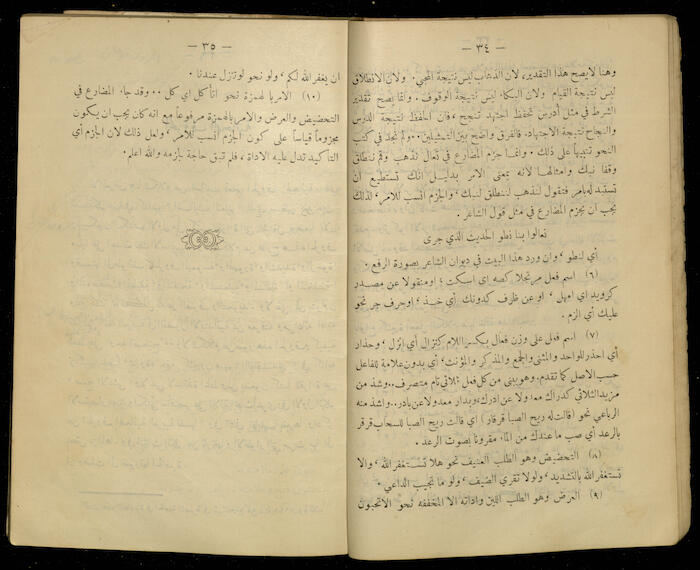 — ٣٤ —
وهنا لايصح هذا التقدير، لان الذهاب ليس نتيجة المجي. ولان الانطلاق
ليس نتيجة القيام ولان البكاء ليس نتيجة الوقوف. وانما يصح تقدير
الشرط في مثل أدرس تحفظ اجتهد تنجح، فان الحفظ نتيجة الدرس
والنجاح نتيجة الاجتهاد. فالفرق واضح بين التمثيلين. ولم نجد في كتب
النحو تنبيهاً على ذلك. وانما جزم المضارع في تعال نذهب وقم ننطلق
وقفا نبك وامثالها لانه بمعنى الامر بدليل انك تستطيع أن
تستبدله بامر فتقول لنذهب لننطلق لنبك، والجزم أنسب للامر، لذلك
يجب ان يجزم المضارع في مثل قول الشاعر.
تعالوا بنا نطو الحديث الذي جرى
أي لنطو، وان ورد هذا البيت في ديوان الشاعر بصورة الرفع.
(٦) اسم فعل مرتجلا كصه اي اسكت، اومنقولا عن مصدر
كرويد اي امهل، او عن ظرف كدونك أي خذ، اوحرف جر نحو
عليك أي الزم.
(٧) اسم فعل على وزن فعال بكسر اللام كنزال أي إنزل، وحذار
أي احذر للواحد والمثنى والجمع والمذكر والمؤنث، أي بدون علامة للفاعل
حسب الاصل كما تقدم. وهويبنى من كل فعل ثلاثي تام متصرف.. وشذ من
مزيد الثلاثي كدراك معدولا عن ادرك، وبدار معدولا عن بادر.. واشذ منه
الرباعي نحو (قالت له ريح الصبا قرقار) اي قالت ريح الصبا للسحاب قرقر
بالرعد أي صب ماعندك من الماء مقرونا بصوت الرعد.
(٨) التحضيض وهو الطلب العنيف نحو هلا تستغفر الله، والا
تستغفر الله بالتشديد، ولولا تقري الضيف، ولو ما تجيب الداعي.
(٩) العرض وهو الطلب اللين واداته الا المخففه نحو الاتحبون
— ٣٥ —
ان يغفر الله لكم، ولو نحو لو تنزل عندنا.
(١٠) الامر بالهمزة نحو أتأكل اي كل.. وقد جاء المضارع في
التحضيض والعرض والامر بالهمزة مرفوعاً مع انه كان يجب ان يكون
مجزوماً قياساً على كون الجزم أنسب للأمر، ولعل ذلك لان الجزم أي
التأكيد تدل عليه الاداة، فلم تبق حاجة بازمه والله اعلم.